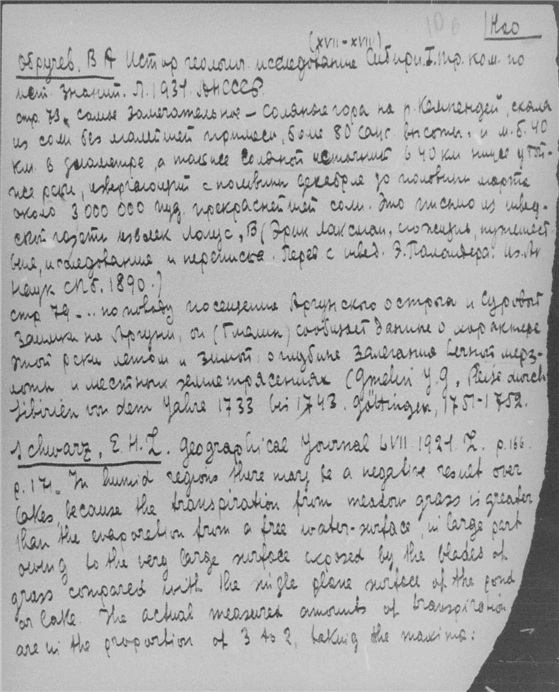 10б Нео
(XVII-XVIII)
Обручев, В А Истор геологич. исследование Сибири. I. Тр. ком. по
ист. знаний. Л. 1931. АНСССР.
стр 79. самое замечательное – соляная гора на р. Кемпендей, скала
из соли без малейшей примеси, более 80 саж. высоты, и м.б. 40
км. в диаметре, а также соляной источник в 40 км ниже у той-
же реки, извергающий с половины декабря до половины марта
около 3 000 000 пуд. прекраснейшей соли. Это письмо из швед-
ской газеты извлек Лагус, В (Эрик Лаксман, его жизнь, путешест
вия, исследования и переписка. Перев с швед. Э. Паландера: из. Ак
Наук СПб. 1890.)
стр 79 – ... по поводу посещения Аргунского острога и Суровой
Заимки на Аргуни, он (Гмелин) сообщает данные о характере
этой реки летом и зимой, о глубине залегания вечной мерз-
лоты и местных землетрясениях (Gmelin J.G., Reise durch
Sibirien von dem Jahre 1733 bis 1743. Göttingen, 1751-1752.
Schwarz, E.H.L. Geographical Journal LVII 1921. L. p. 166.
p. 171. In humid regions there may be a negative result over
lakes because the transpiration from meadow grass is greater
than the evaporation from a free water-surface, in large part
owing to the very large surface exposed by the blades of
grass compared with the single plane surface of the pond
or lake. The actual measured amounts of transpiration
are in the proportion of 3 to 2, taking the maxima: